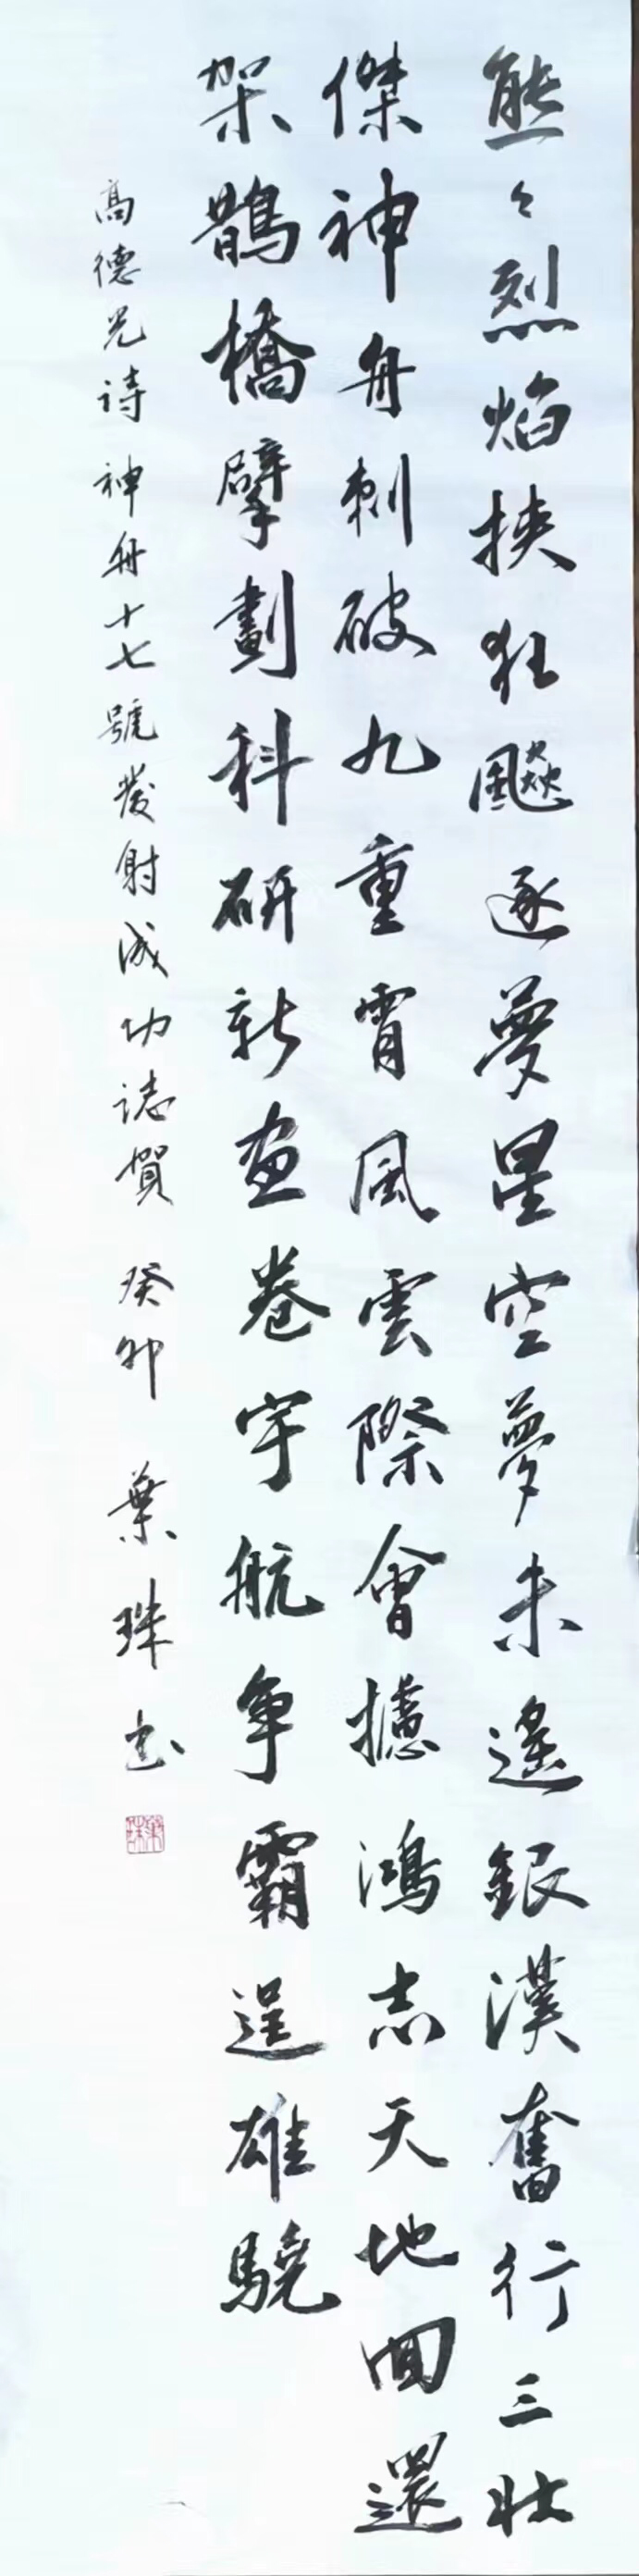 熊々烈焰挾狂飇逐夢星空夢未遙銀漢奮行三壯
傑神舟刺破九重霄風雲際會攄鴻志天地回還
架鵲橋擘劃科研新画卷宇航争霸逞雄驍
高德光詩神舟十七號發射成功誌賀 癸卯 葉珠书